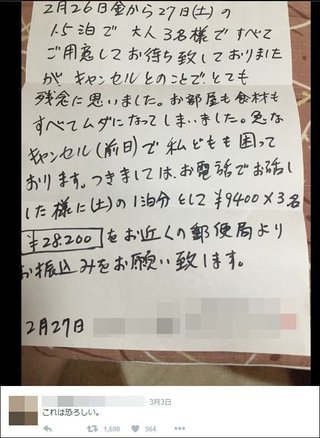 2月26日金から27日(土)の
1.5泊で大人3名様ですべて
ご用意してお待ち致しておりました
が キャンセルとのことで、とても
残念に思いました。お部屋も食材も
すべてムダになってしまいました。急な
キャンセル(前日)で私どもも困って
おります。つきましては、お電話でお話し
した様に(土)の1泊分として ¥9400×3名
¥28.200 をお近くの郵便局より
お振込みをお願い致します。
2月27日
3月3日
これは恐ろしい。
1,690 564